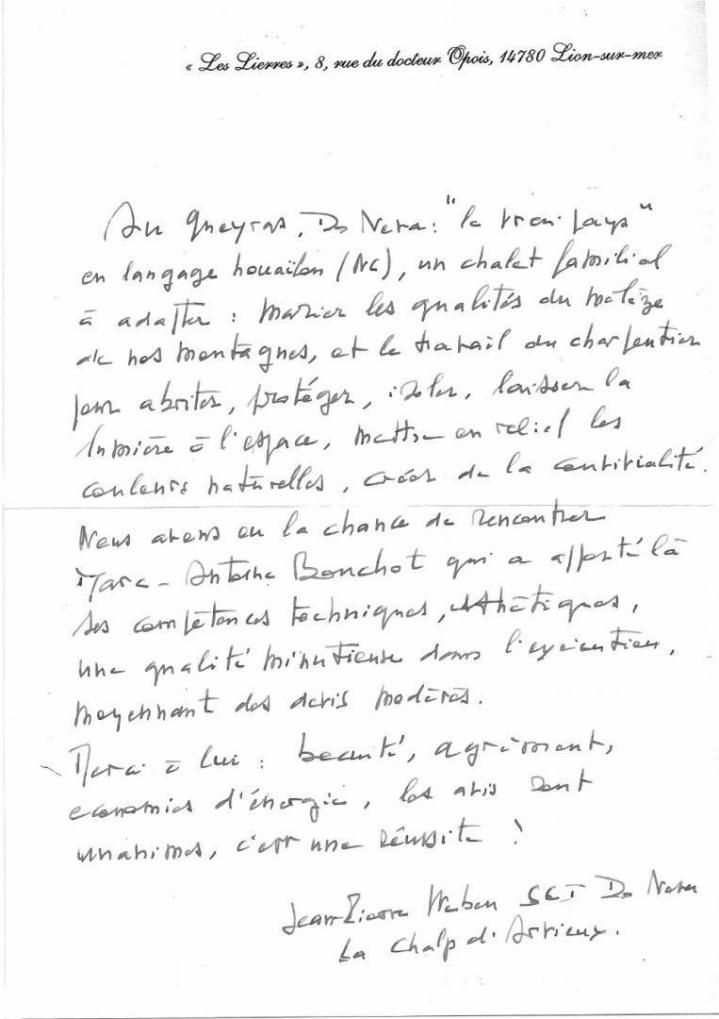 « Les Lierres », 8, rue du docteur Opois, 14780 Lion-sur-mer
Au Queyras, Do Neva : "le vrai pays"
en langage houaïlou (NC), un chalet familial
à adapter : marier les qualités du mélèze
de nos montagnes, et le travail du charpentier
pour abriter, protéger, isoler, laisser la
lumière à l'espace, mettre en relief les
couleurs naturelles, créer de la convivialité.
Nous avons eu la chance de rencontrer
Marc-Antoine Bonchot qui a apporté là
ses compétences techniques, esthétiques,
une qualité minutieuse dans l'exécution,
moyennant des devis modérés.
Merci à lui : beauté, agrément,
économies d'énergie, les avis sont
unanimes, c'est une réussite !
Jean-Pierre SCI Do Neva
La Chalp d'Arvieux.